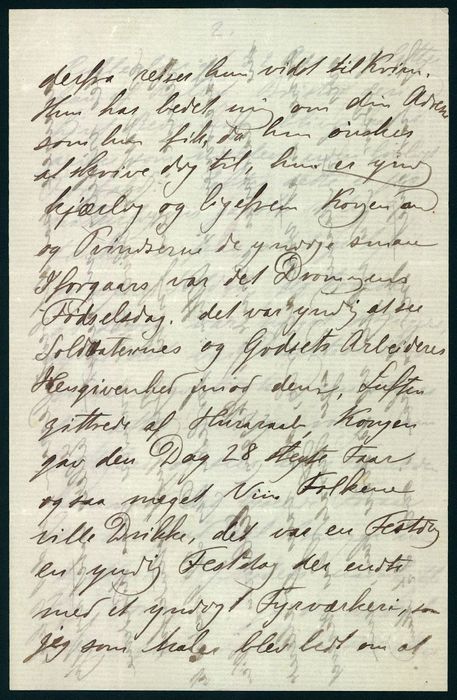 2.
derfra reiser hun vidst til Krim.
Hun har bedet mig om din Adresse
som hun fik, da hun ønsker
at skrive dog til, hun er yndig
kjærlig og ligesrem Kongen an.
og Prindserne de yndige smaae
Iforgaars var det Dronningens
Fødselsdag. det var yndig at see
Soldaternes og Godsets Arbeideres
Hengivenhed imod dem, Luften
gittrede af Huraraab Kongen
gav den Dag 28 stegte Faar
ogsaa meget Vin Folkene
ville Drikke, det var en Festdag
en yndig Festdag der endte
med et yndigt Fyrværkeri, som
jeg som Maler blev bedt om at